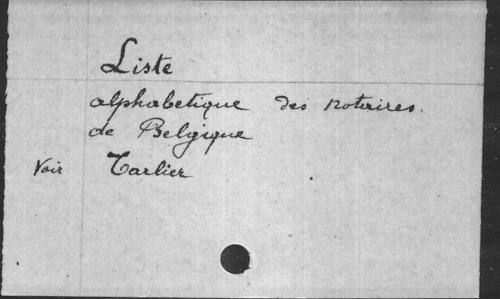 Liste
alphabetique des notaires.
de Belgique
Voir Tarlier